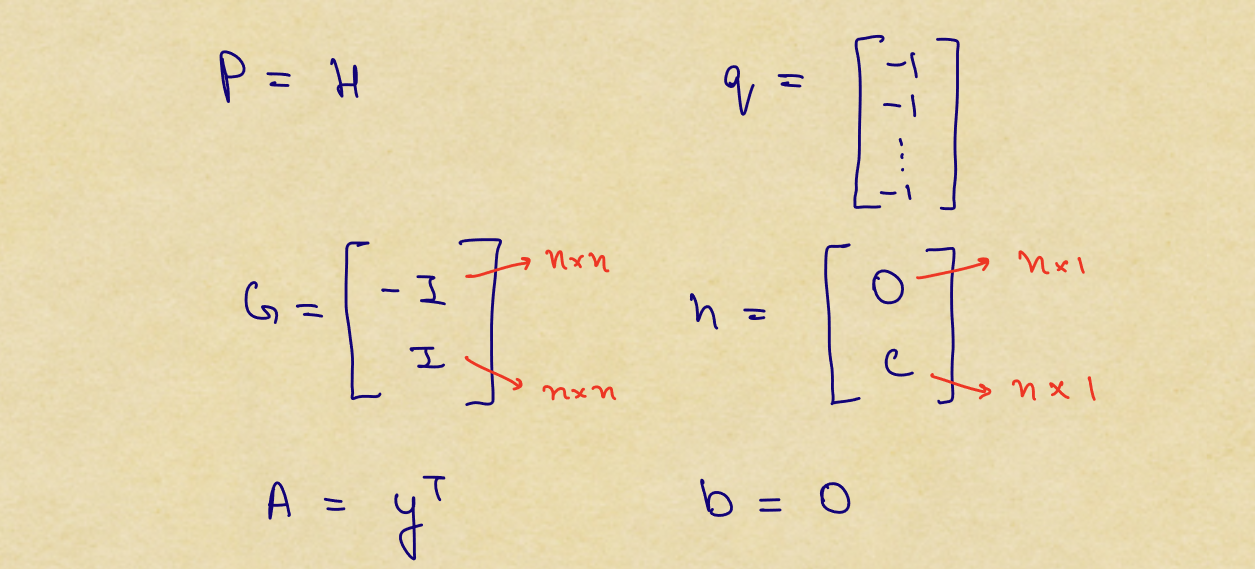 P = H
q = [ -1 -1 ⋮ -1 ]
G = [ -I I ] n×n n×n
h = [ 0 C ] n×1 n×1
A = yᵀ
b = 0